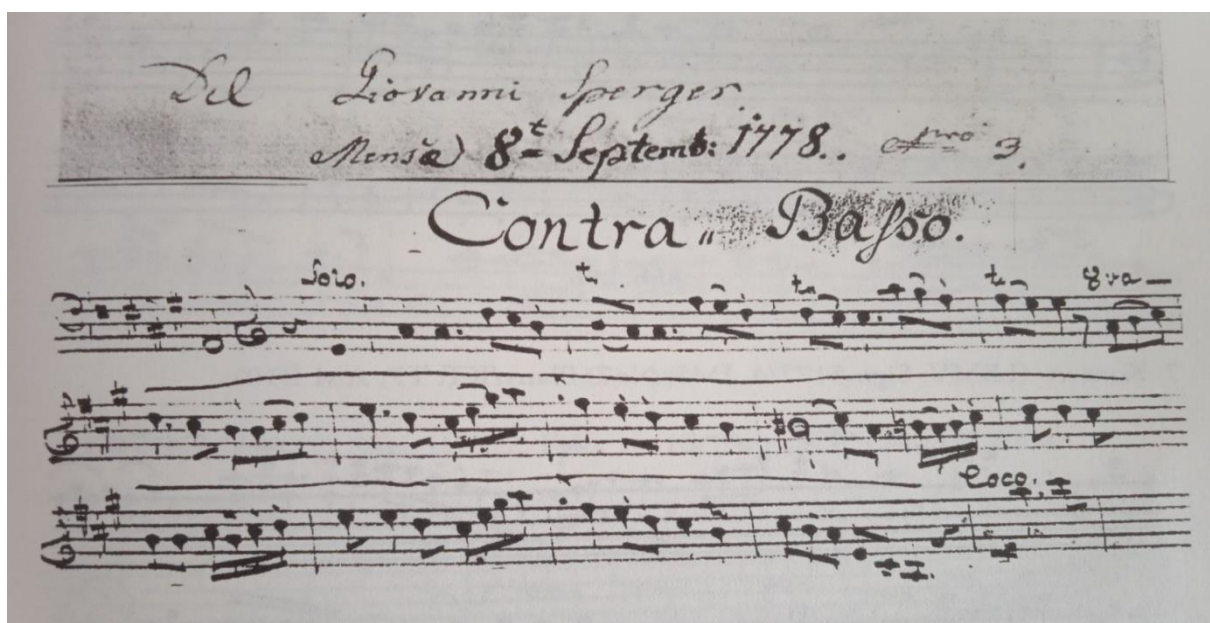 Del Giovanni Sperger
Mensē 8t Septemb: 1778.. Nro 3.
Contra„ Basso.
Solo.
t t t 8va
Loco.